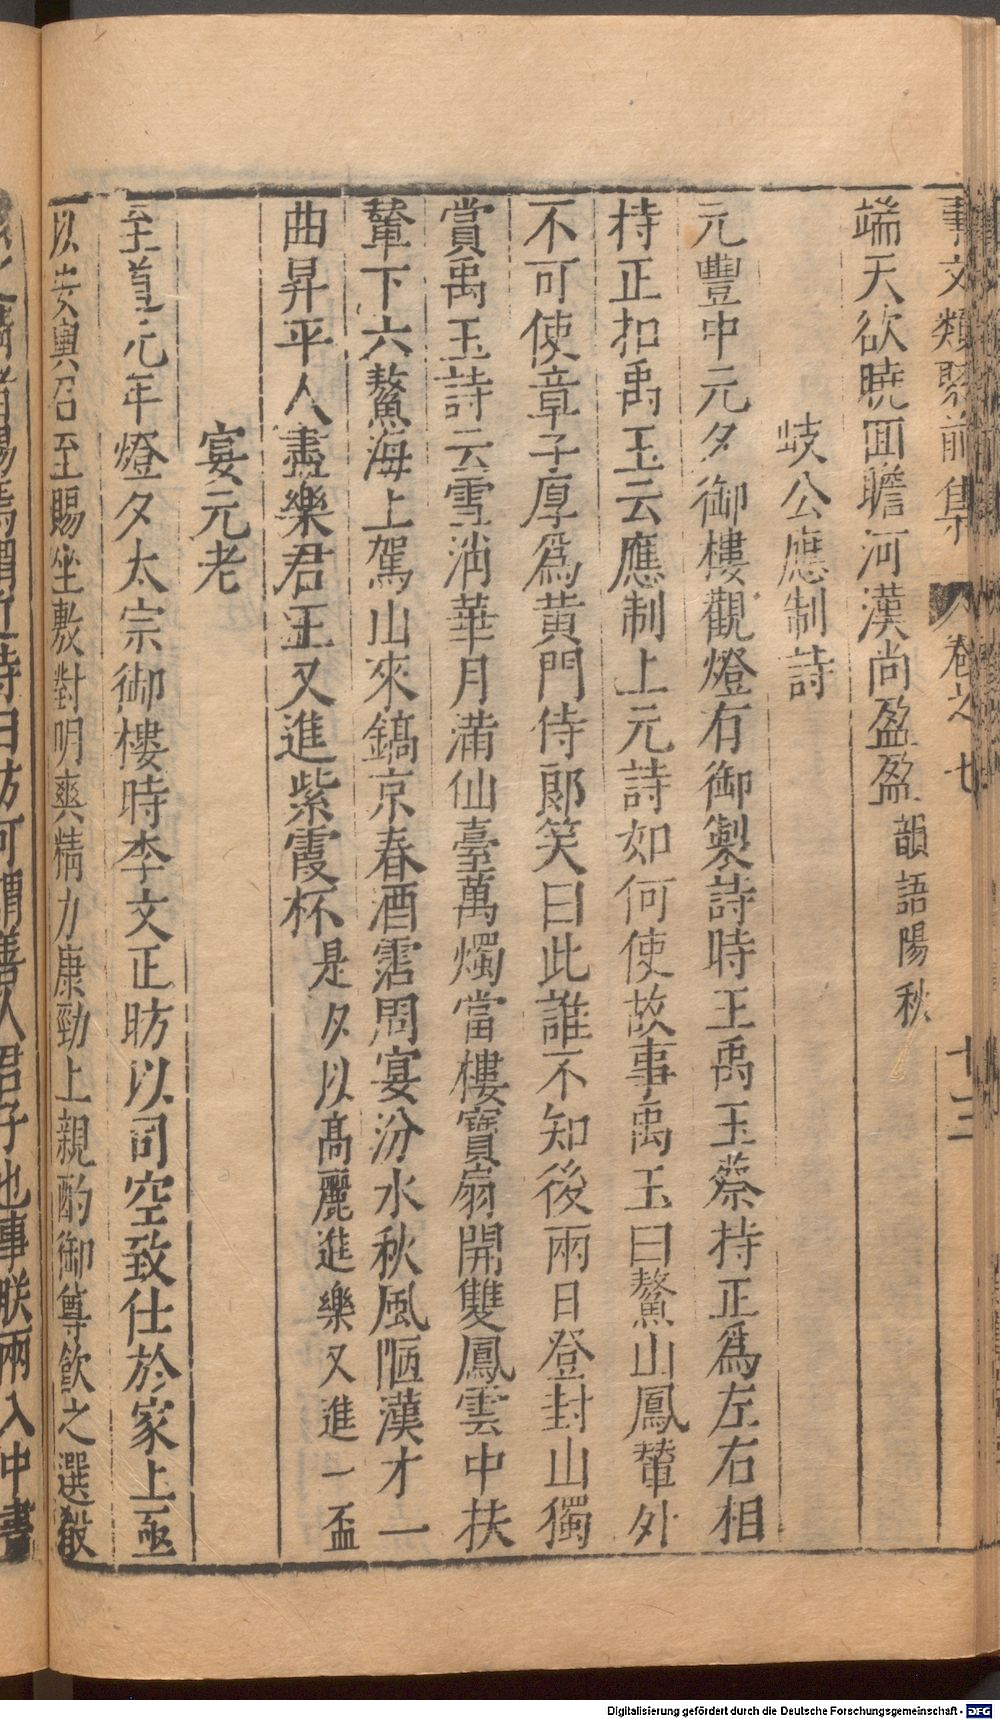 事文類聚前集 卷之七 十三
端天欲曉回瞻河漢尚盈盈韻語陽秋
岐公應制詩
元豐中元夕御樓觀燈有御製詩時王禹玉蔡持正爲左右相
持正扣禹玉云應制上元詩如何使故事禹玉曰鰲山鳳輦外
不可使章子厚爲黃門侍郎笑曰此誰不知後兩日登封山獨
賞禹玉詩云雪消華月滿仙臺萬燭當樓寶扇開雙鳳雲中扶
輦下六鰲海上駕山來鎬京春酒霑周宴汾水秋風陋漢才一
曲昇平人盡樂君王又進紫霞杯是夕以高麗進樂又進一盃
宴元老
至道元年燈夕太宗御樓時李文正昉以司空致仕於家上亟
以安輿召至賜坐敷對明爽精力康勁上親酌御尊飲之選殽
詩曰昉可謂善人君子也事朕兩入中書
Digitalisierung gefördert durch die Deutsche Forschungsgemeinschaft - DFG